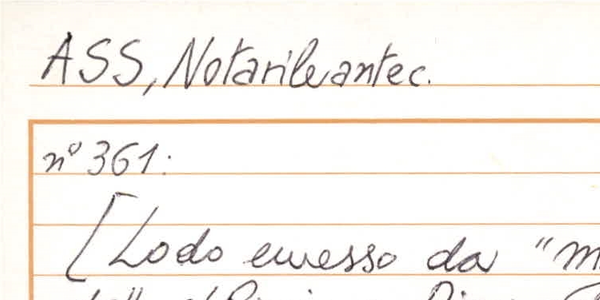 ASS, Notarile antec.
n° 361:
[Lodo emesso da "m